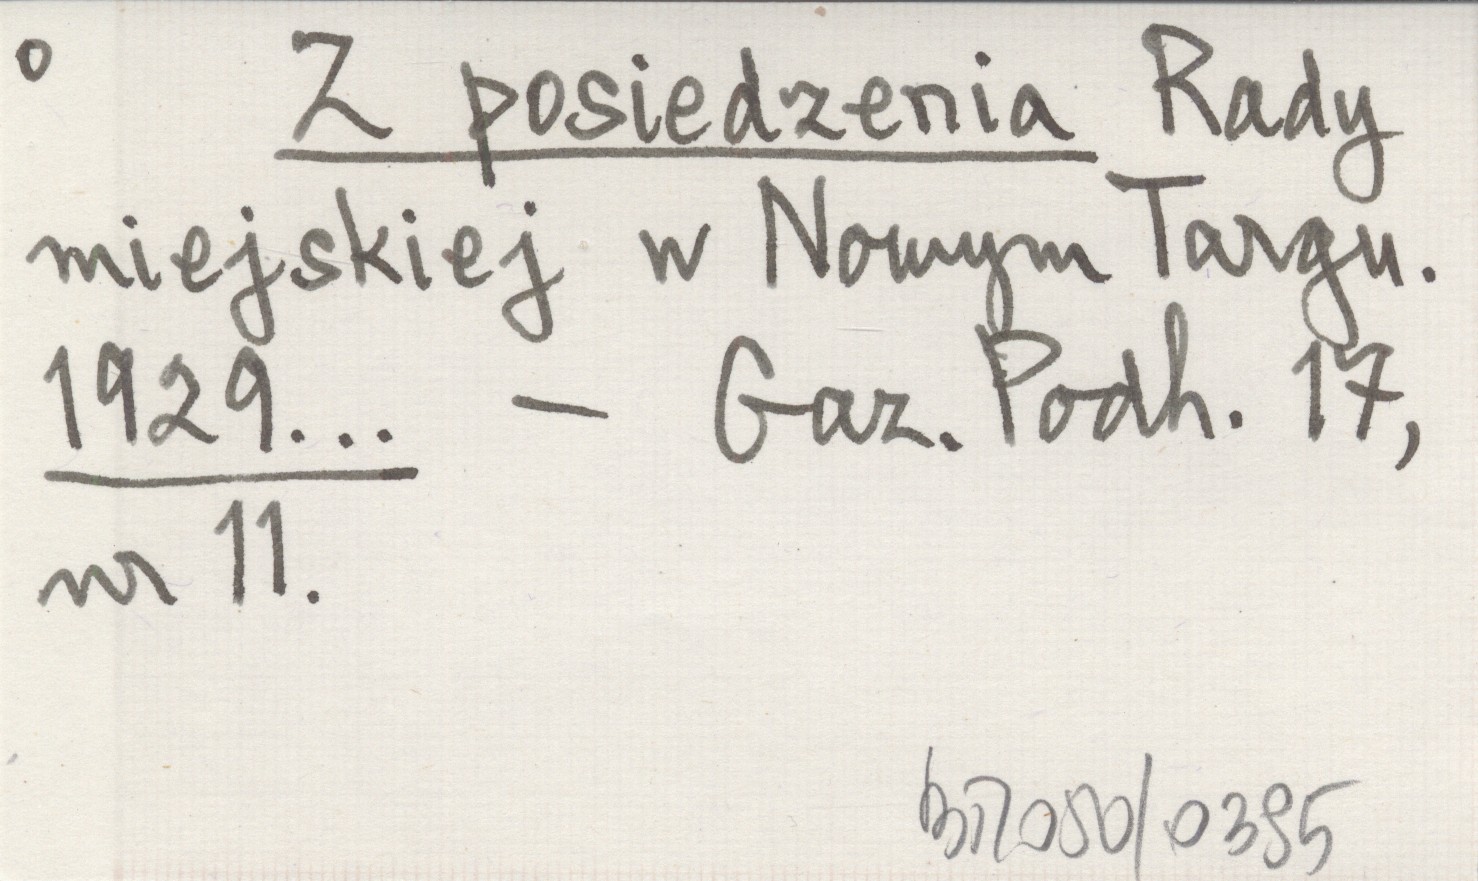 o Z posiedzenia Rady
miejskiej w Nowym Targu.
1929... — Gaz. Podh. 17,
nr 11.